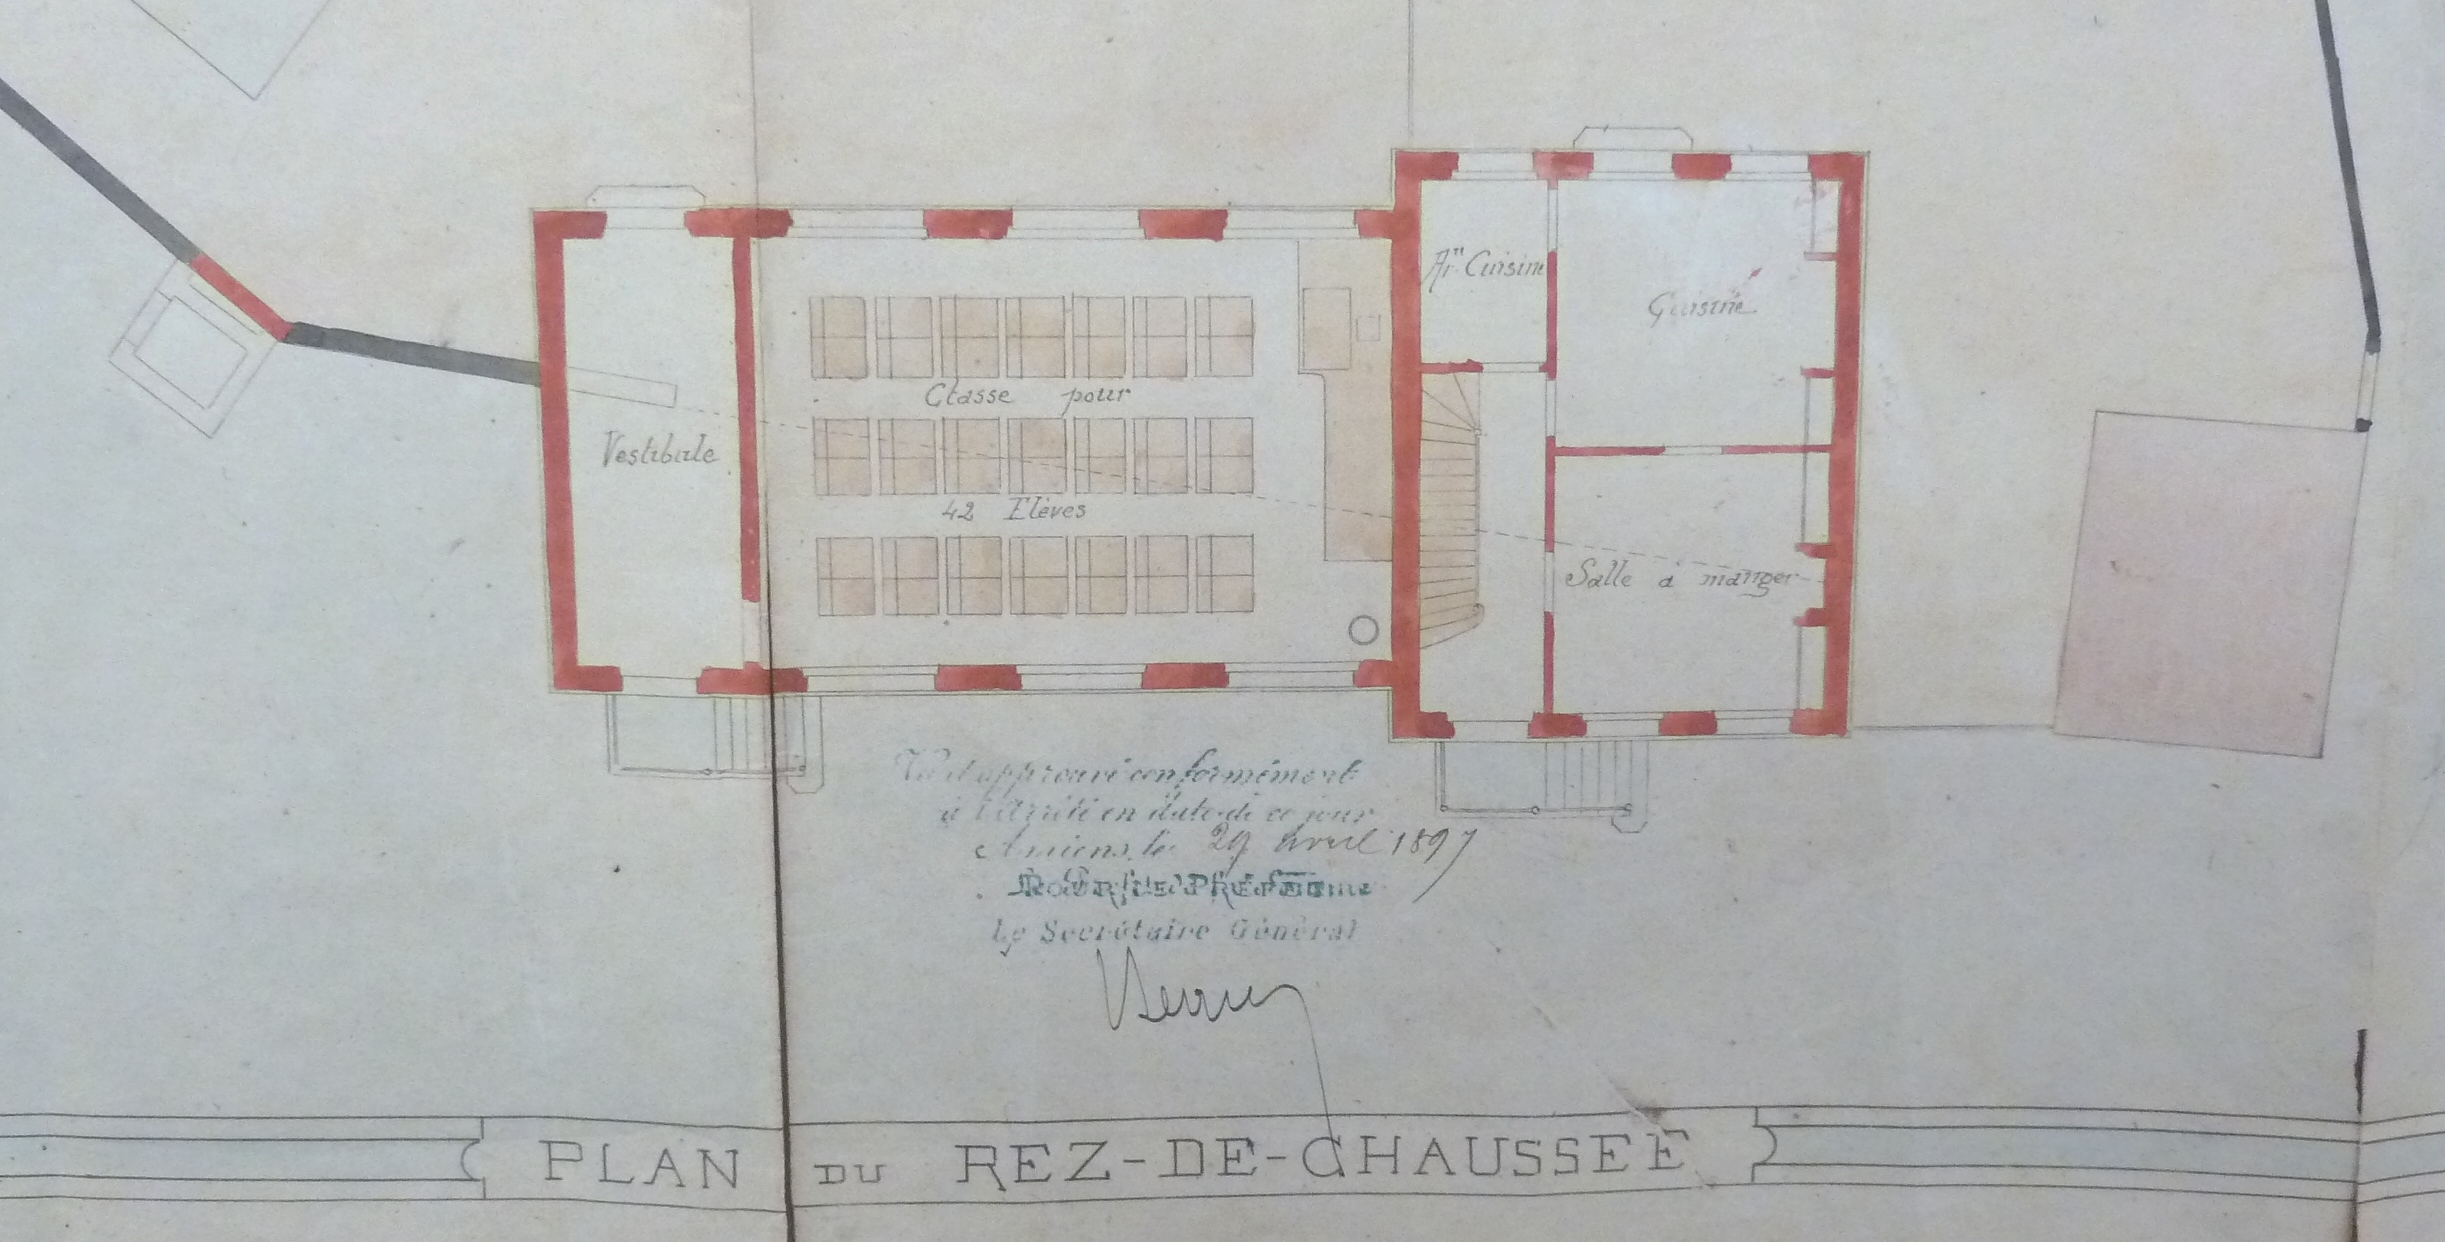 Arr. Cuisine
Cuisine
Classe pour
Vestibule
42 Elèves
Salle à manger
Vu et approuvé conformément
à l'Arrêté en date de ce jour
Amiens, le 29 avril 1897
POUR LE PRÉFET
Le Secrétaire Général
PLAN DU REZ-DE-CHAUSSEE